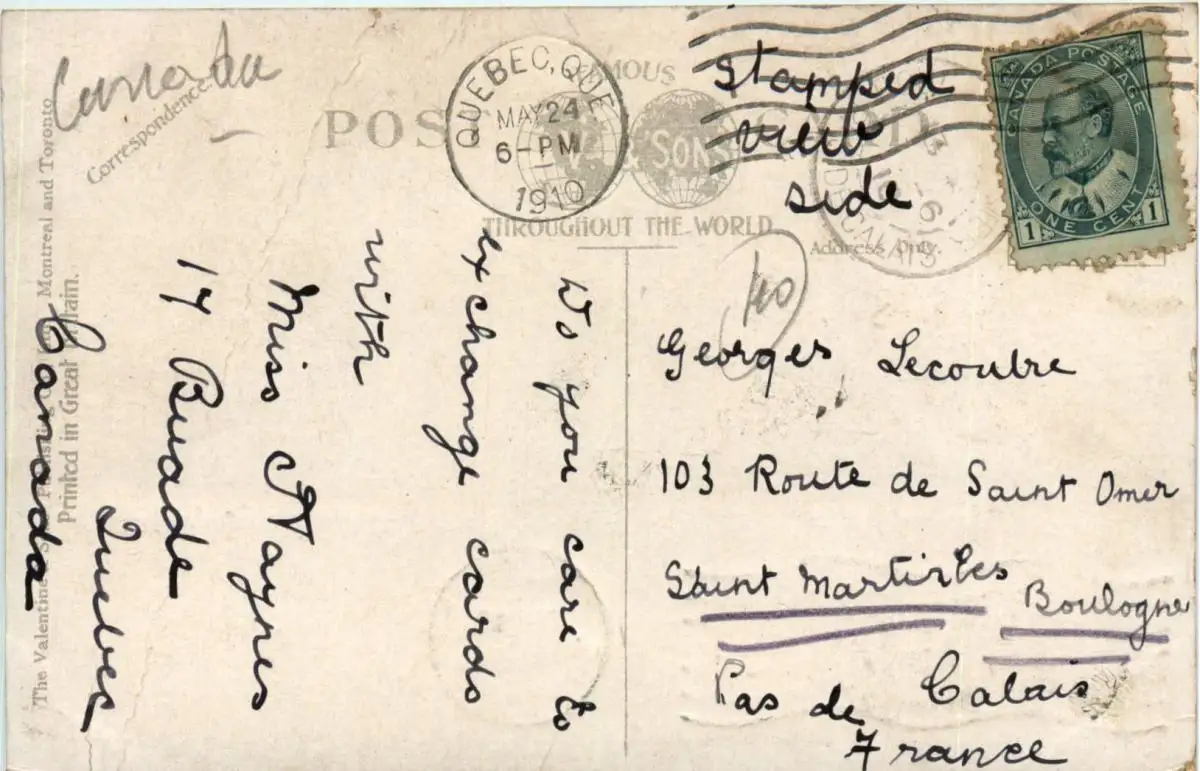 Canada
Correspondence.
POS
FAMOUS
& SONS
CARD
THROUGHOUT THE WORLD
Address Only.
QUEBEC, QUE.
MAY 24
6-PM
1910
Stamped
view
side
CANADA POSTAGE
ONE CENT
1 1
40
Do you care to
exchange cards
with
Miss Naynes
17 Buade
Quebec
Canada
Georges Lecoutre
103 Route de Saint Omer
Saint Martin les Boulogne
Pas de Calais
France
The Valentine & Sons Publishing Co. Montreal and Toronto
Printed in Great Britain.